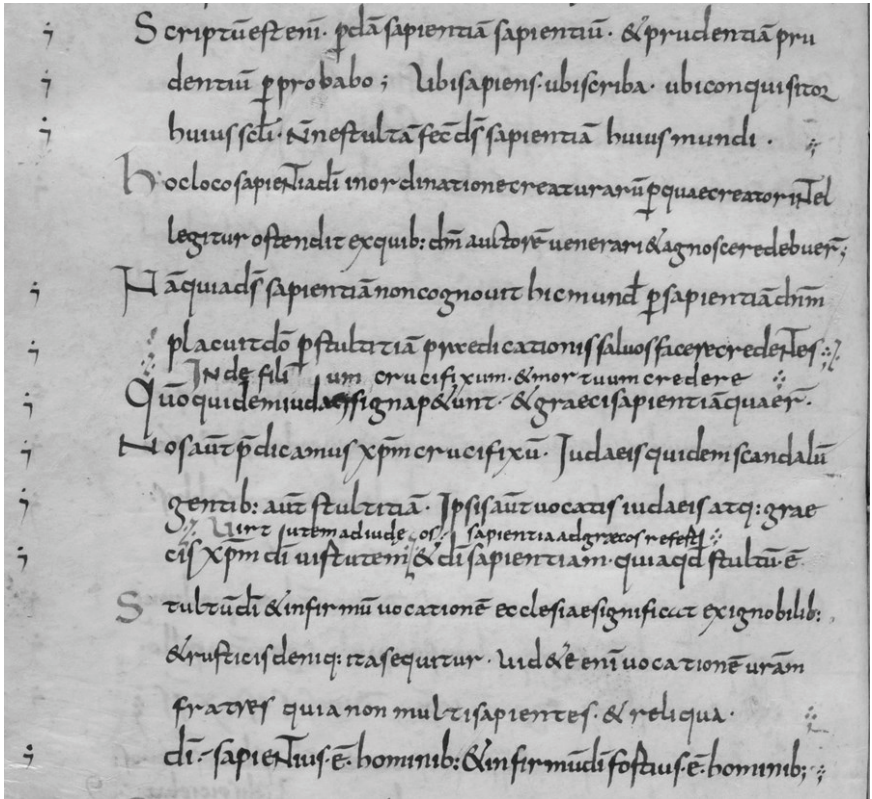 Scriptū est enī· ꝑdā sapientiā sapientiū· & prudentiā pru
dentiū ꝑprobabo; Ubi sapiens· ubi scriba· ubi conquisitor
huius scl̄i· Nn̄e stultā fec̄ ds̄ sapientiā huius mundi·
Hoc loco sapientia dī in ordinatione creaturarū ꝑ quae creator intel
legitur ostendit ex quib: dm̄ auctorē venerari & agnoscere debuer̄;
Nā quia ds̄ sapientiā non cognovit hic mund ꝑ sapientiā dnm̄
placuit dō ꝑ stultitiā praedicationis salvos facere credentes
Inde filium crucifixum· & mortuum credere
Qūo quidem iudaei signa p&unt· & graeci sapientiā quaer̄·
Nos aūt p̄dicamus xp̄m crucifixū· Iudaeis quidem scandalū
gentib: aūt stultitiā· Ipsis aūt vocatis iudaeis atq: grae
Virtutem ad iudeos sapientia ad grecos refert
cis xp̄m dī virtutem & dī sapientiam· quia qd̄ stultū· ē·
Stultū dī & infirmū vocationē ecclesiae significat ex ignobilib:
& rusticis deniq: ita sequitur· Uid&e enī vocationē vr̄am
fratres quia non multi sapientes· & reliqua·
dī· sapientius· ē· hominib: & infirmū dī fortius· ē· hominib;